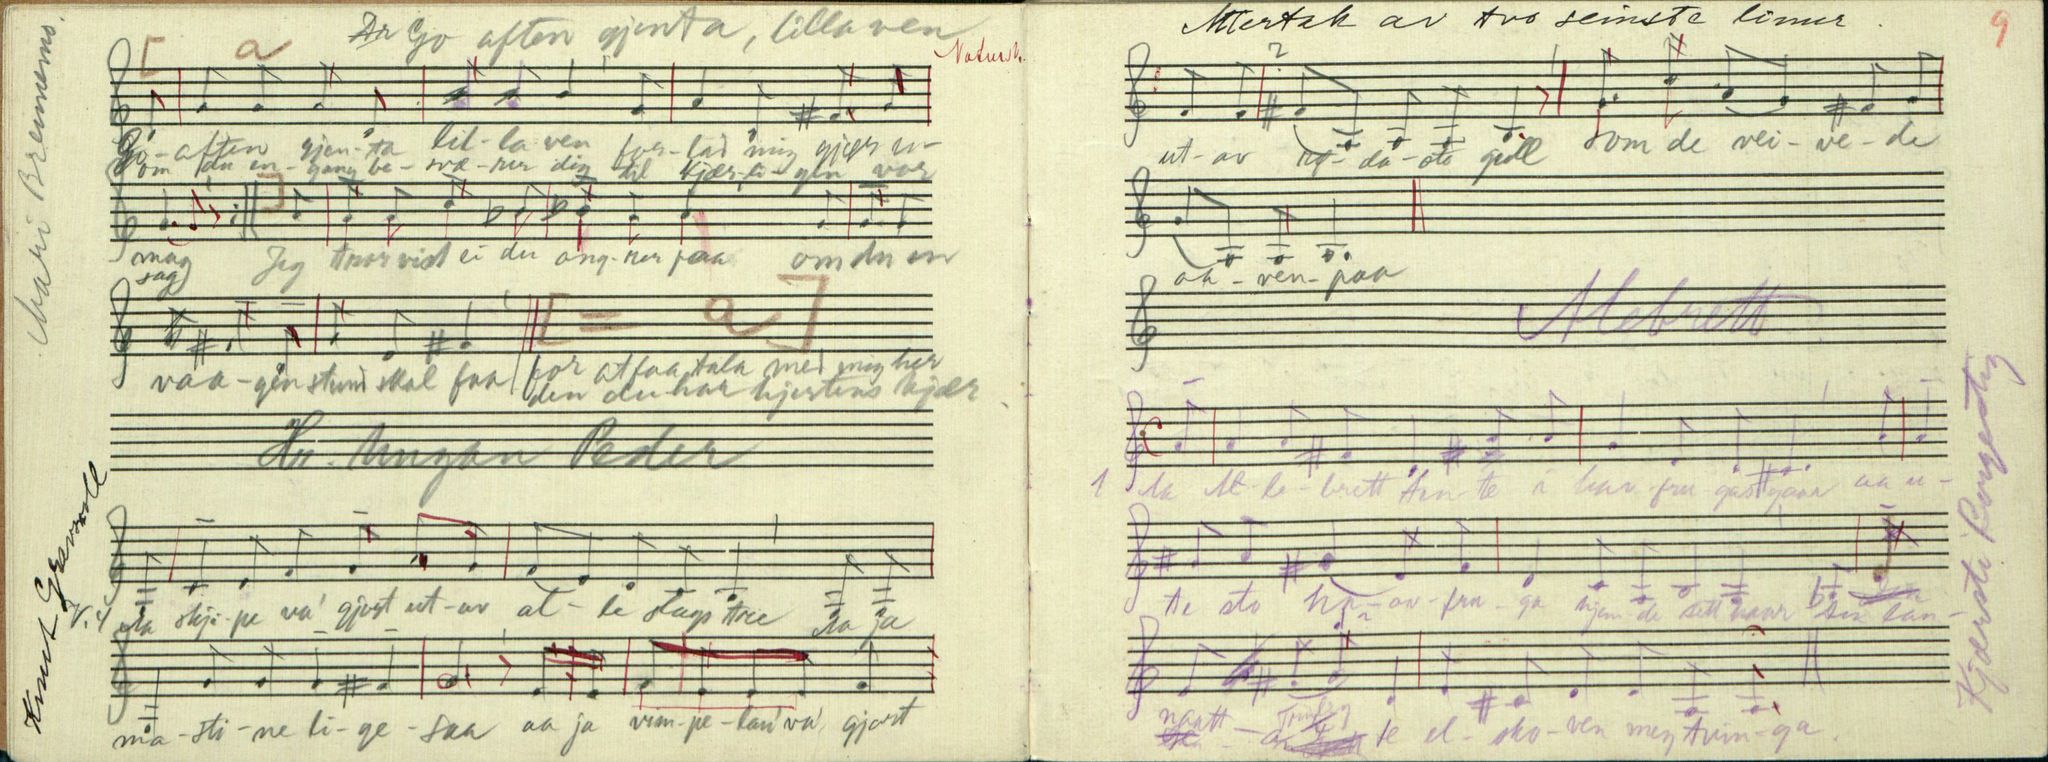 Go aften gjenta, lilla ven
Mari Bremenes.
[ a
Go-aften gjen-ta lil-la-ven for-lad mig gjer u-
om du en-gang be-svæ-rer dig til kjær-li-gen var
mag Jeg tror vist ei du ang-rer paa om du en
sag
vaa-gen stund skal faa for at faa tala med mig her
den du har hjertens kjær
[ = a ]
Hr. Ungan Peder
Knut
V. 4 Aa skji-pe va' gjort ut-av al-le slags tree Aa ja
ma-sti-ne li-ge-saa aa ja vim-pe-lan' va' gjort
Attertak av tvo seinste linur.
9
ut-av rø-da-ste gull som de vei-ve-de
aa-ven-paa
Alebrett
1 Aa Al-le-brett han te i hav-fru gaatt gaar aa u-
te sto hav-fru-ga kjem-de sitt haar
naatt te el-sko-ven meg tvin-ga.
Kjersti